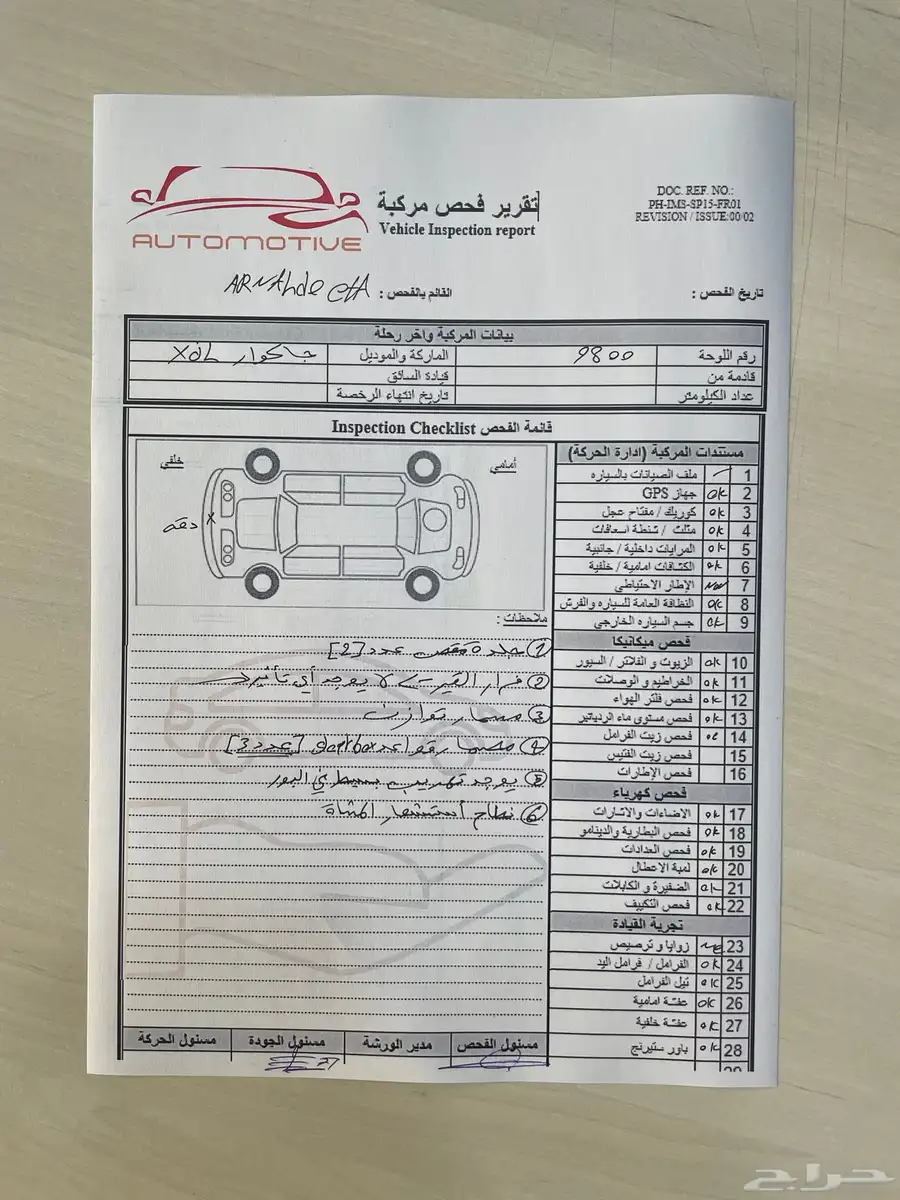 AUTOMOTIVE
تقرير فحص مركبة
Vehicle Inspection report
DOC. REF. NO.:
PH-IMS-SP15-FR01
REVISION / ISSUE:00/02
تاريخ الفحص :
القائم بالفحص :
بيانات المركبة واخر رحلة
رقم اللوحة 9800 الماركة والموديل جاكوار XJL
قادمة من قيادة السائق
عداد الكيلومتر تاريخ انتهاء الرخصة
قائمة الفحص Inspection Checklist
أمامي
خلفي
X دقه
مستندات المركبة (ادارة الحركة)
1 ملف الصيانات بالسياره
2 OK جهاز GPS
3 OK كوريك / مفتاح عجل
4 OK مثلث / شنطة اسعافات
5 OK المرايات داخلية / جانبية
6 OK الكشافات امامية / خلفية
7 الإطار الاحتياطي
8 OK النظافة العامة للسياره والفرش
9 OK جسم السياره الخارجي
فحص ميكانيكا
10 OK الزيوت و الفلاتر / السيور
11 OK الخراطيم و الوصلات
12 OK فحص فلتر الهواء
13 OK فحص مستوى ماء الردياتير
14 فحص زيت الفرامل
15 فحص زيت الفتيس
16 فحص الإطارات
فحص كهرباء
17 OK الاضاءات والاشارات
18 OK فحص البطارية والدينامو
19 OK فحص العدادات
20 OK لمبة الاعطال
21 OK الضفيرة و الكابلات
22 OK فحص التكييف
تجربة القيادة
23 زوايا و ترصيص
24 OK الفرامل / فرامل اليد
25 OK تيل الفرامل
26 OK عفشة امامية
27 OK عفشة خلفية
28 OK باور ستيرنج
29
ملاحظات :
① جلدة مقص عدد [2]
② لا يوجد أي تأثير
③ مسمار توازن
④ قواعد gearbox [عدد 3]
⑤ يوجد تهريب بسيط في البور
⑥ أستشعار
مسئول الفحص
مدير الورشة
مسئول الجودة
مسئول الحركة
حراج